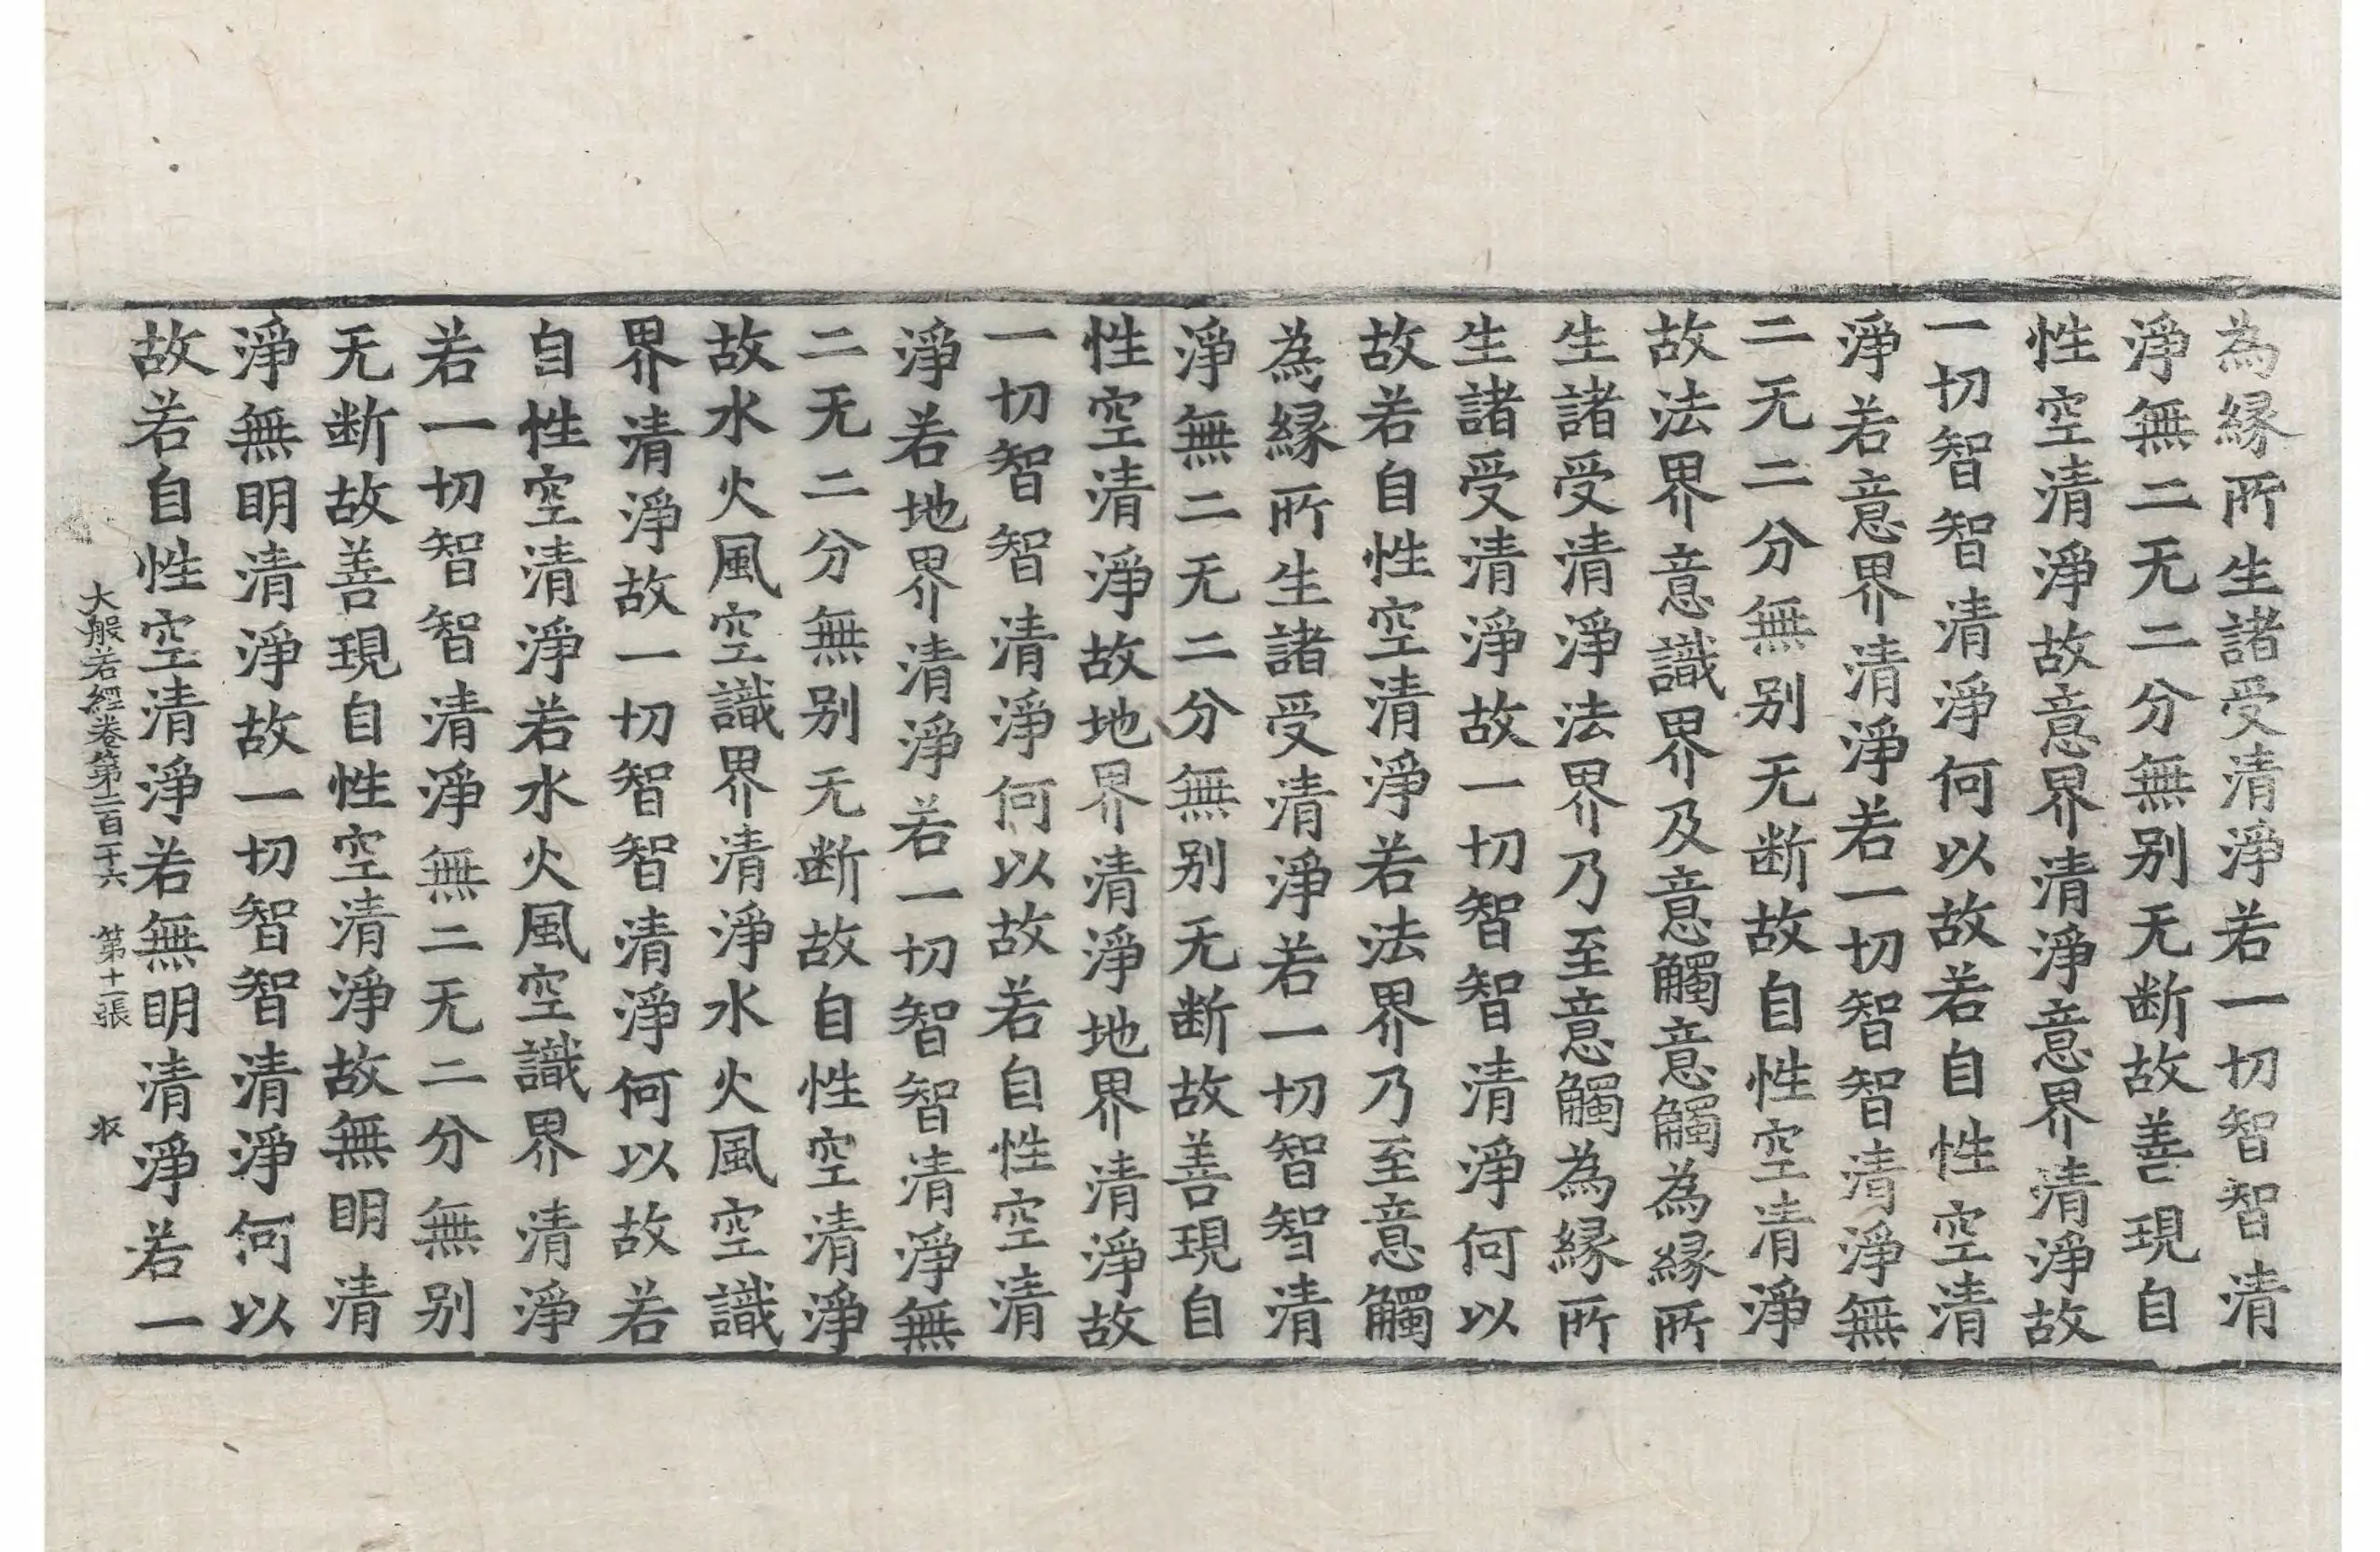 為縁所生諸受清淨若一切智智清
淨無二无二分無别无断故善現自
性空清淨故意界清淨意界清淨故
一切智智清淨何以故若自性空清
淨若意界清淨若一切智智清淨無
二无二分無别无断故自性空清淨
故法界意識界及意觸意觸為縁所
生諸受清淨法界乃至意觸為縁所
生諸受清淨故一切智智清淨何以
故若自性空清淨若法界乃至意觸
為縁所生諸受清淨若一切智智清
淨無二无二分無别无断故善現自
性空清淨故地界清淨地界清淨故
一切智智清淨何以故若自性空清
淨若地界清淨若一切智智清淨無
二无二分無别无断故自性空清淨
故水火風空識界清淨水火風空識
界清淨故一切智智清淨何以故若
自性空清淨若水火風空識界清淨
若一切智智清淨無二无二分無别
无断故善現自性空清淨故無明清
淨無明清淨故一切智智清淨何以
故若自性空清淨若無明清淨若一
大般若經卷第二百二十六 第十一張 収